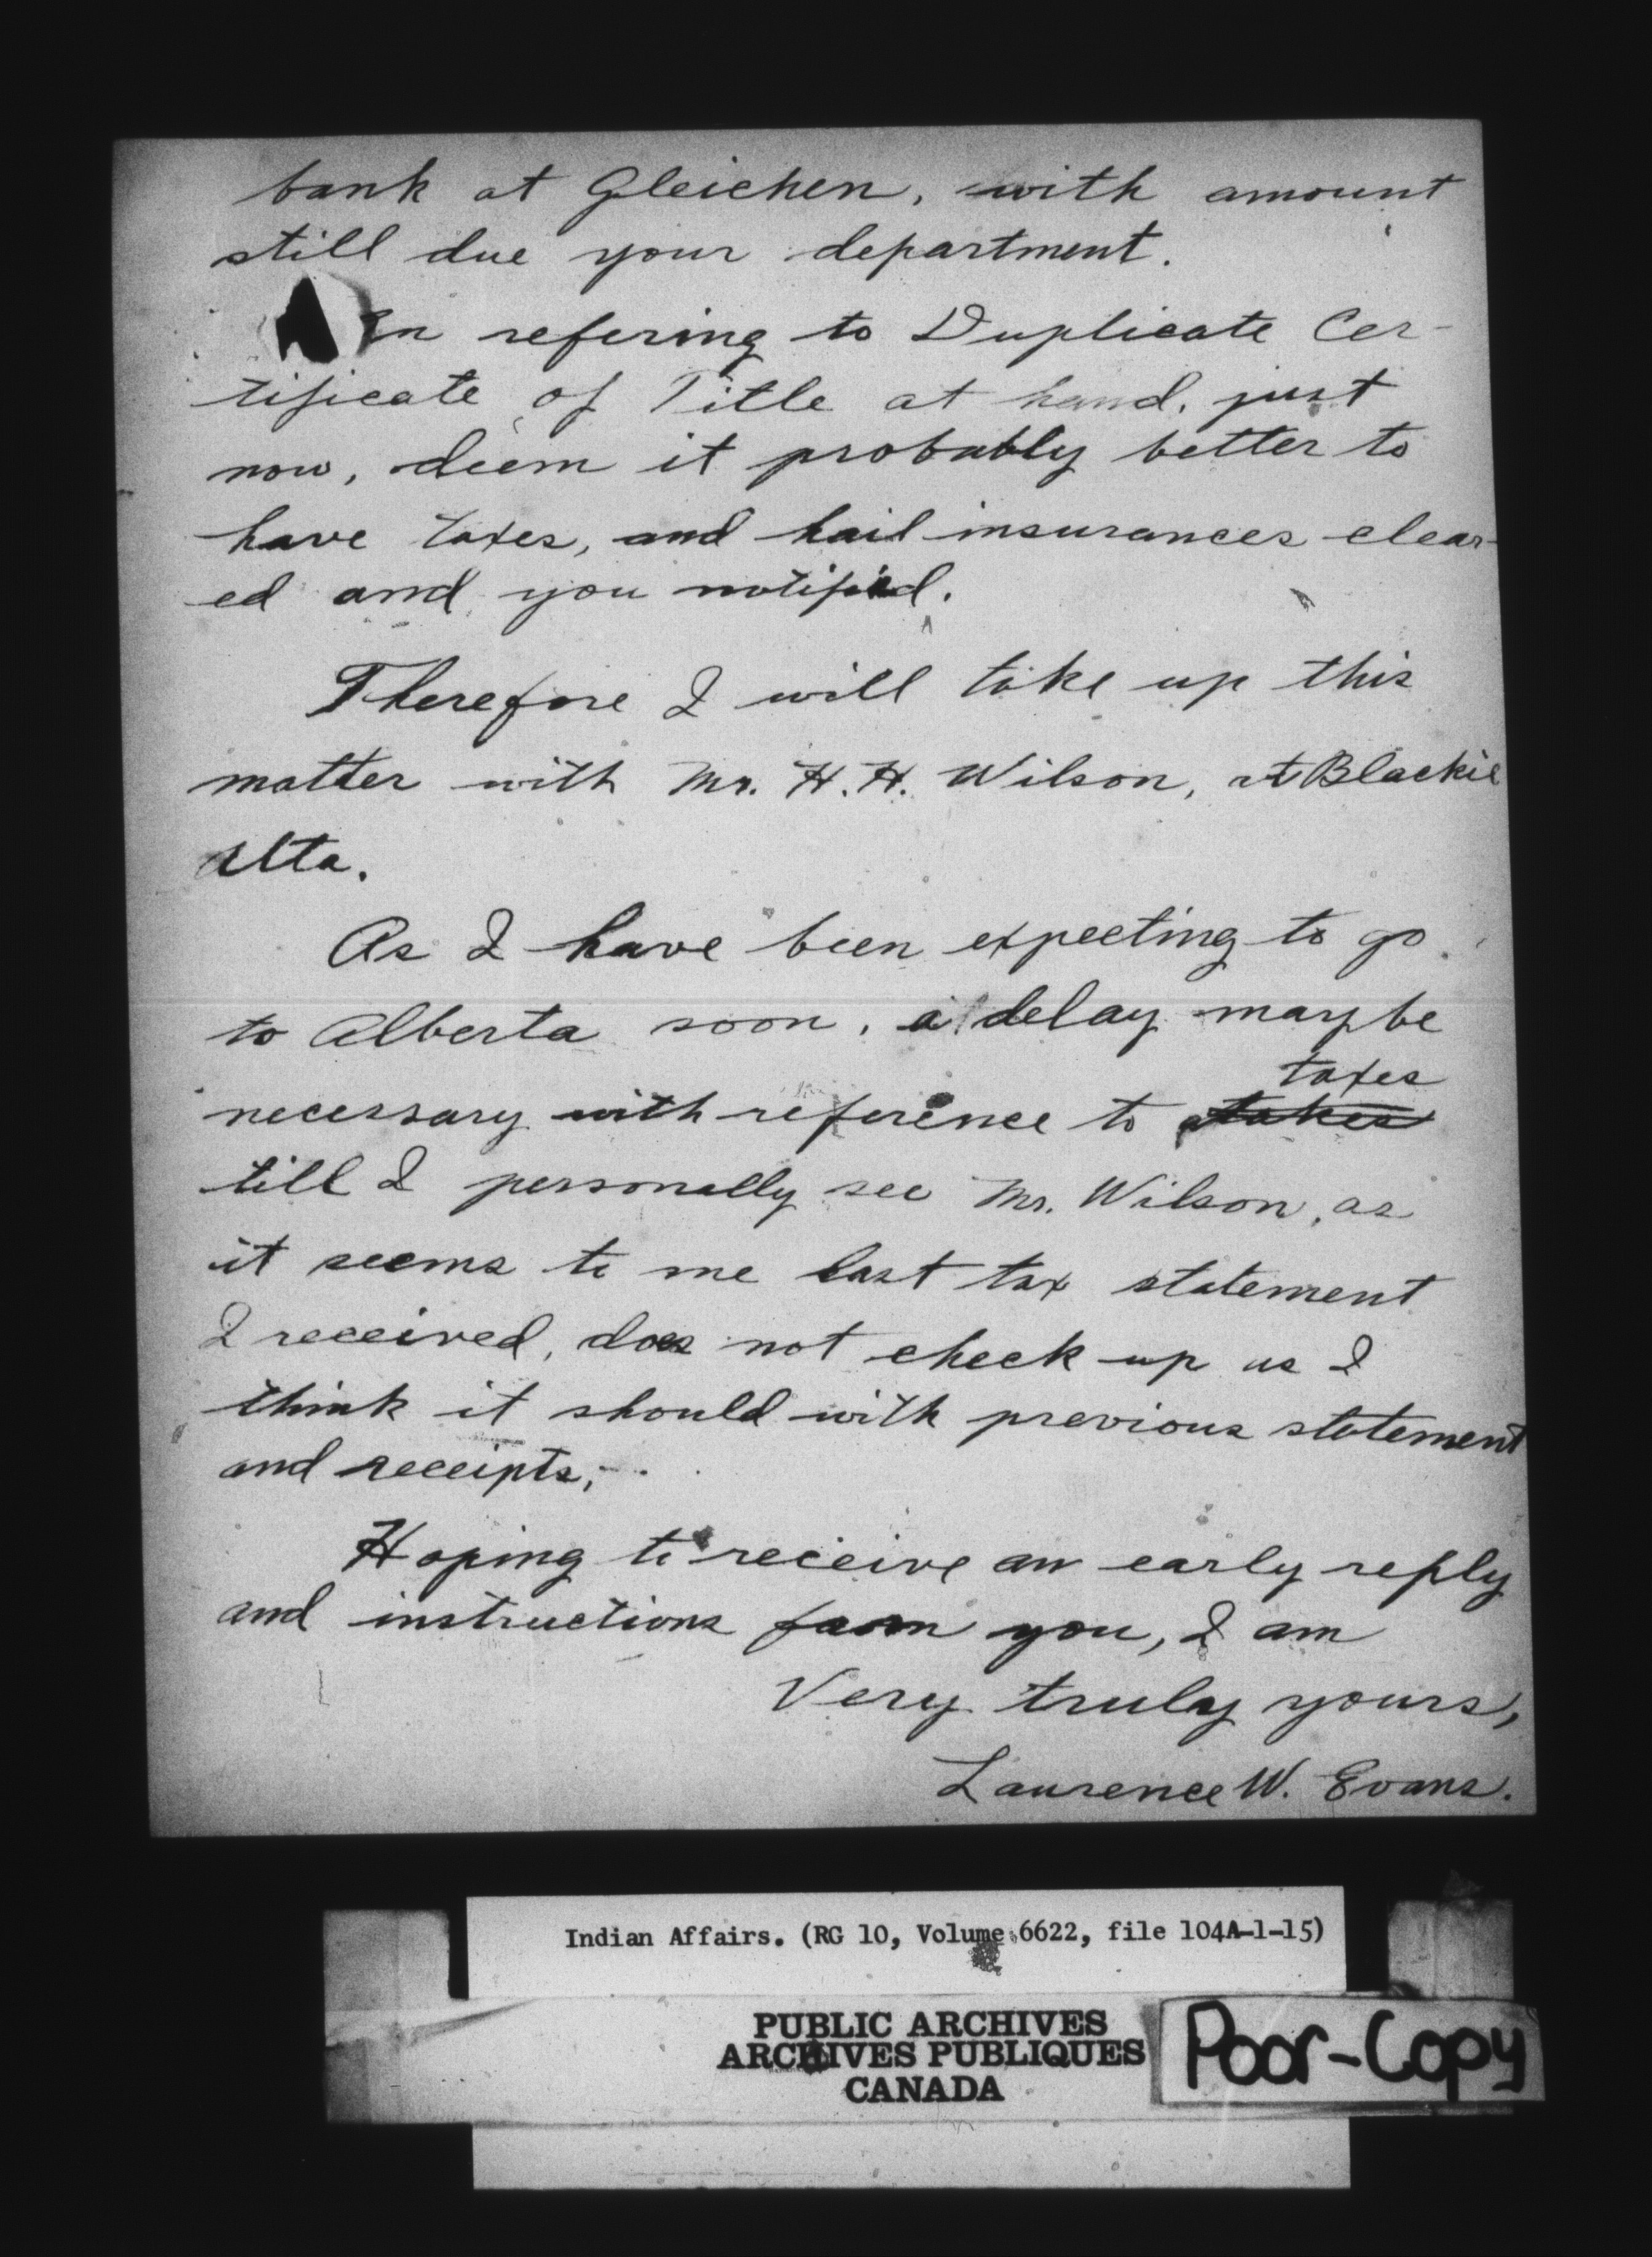 bank at Gleichen, with amount
still due your department.
In refering to Duplicate Cer-
tificate of Title at hand, just
now, deem it probably better to
have taxes, and hail insurances clear-
ed and you notified.
Therefore I will take up this
matter with Mr. H. H. Wilson, at Blackie
Alta.
As I have been expecting to go
to Alberta soon, a delay maybe
taxes
necessary with reference to takes
till I personally see Mr. Wilson, as
it seems to me last tax statement
I received, does not check up as I
think it should with previous statement
and receipts,
Hoping to receive an early reply
and instructions from you, I am
Very truly yours,
Laurence W. Evans.
Indian Affairs. (RG 10, Volume 6622, file 104A-1-15)
PUBLIC ARCHIVES
ARCHIVES PUBLIQUES
CANADA
Poor-Copy